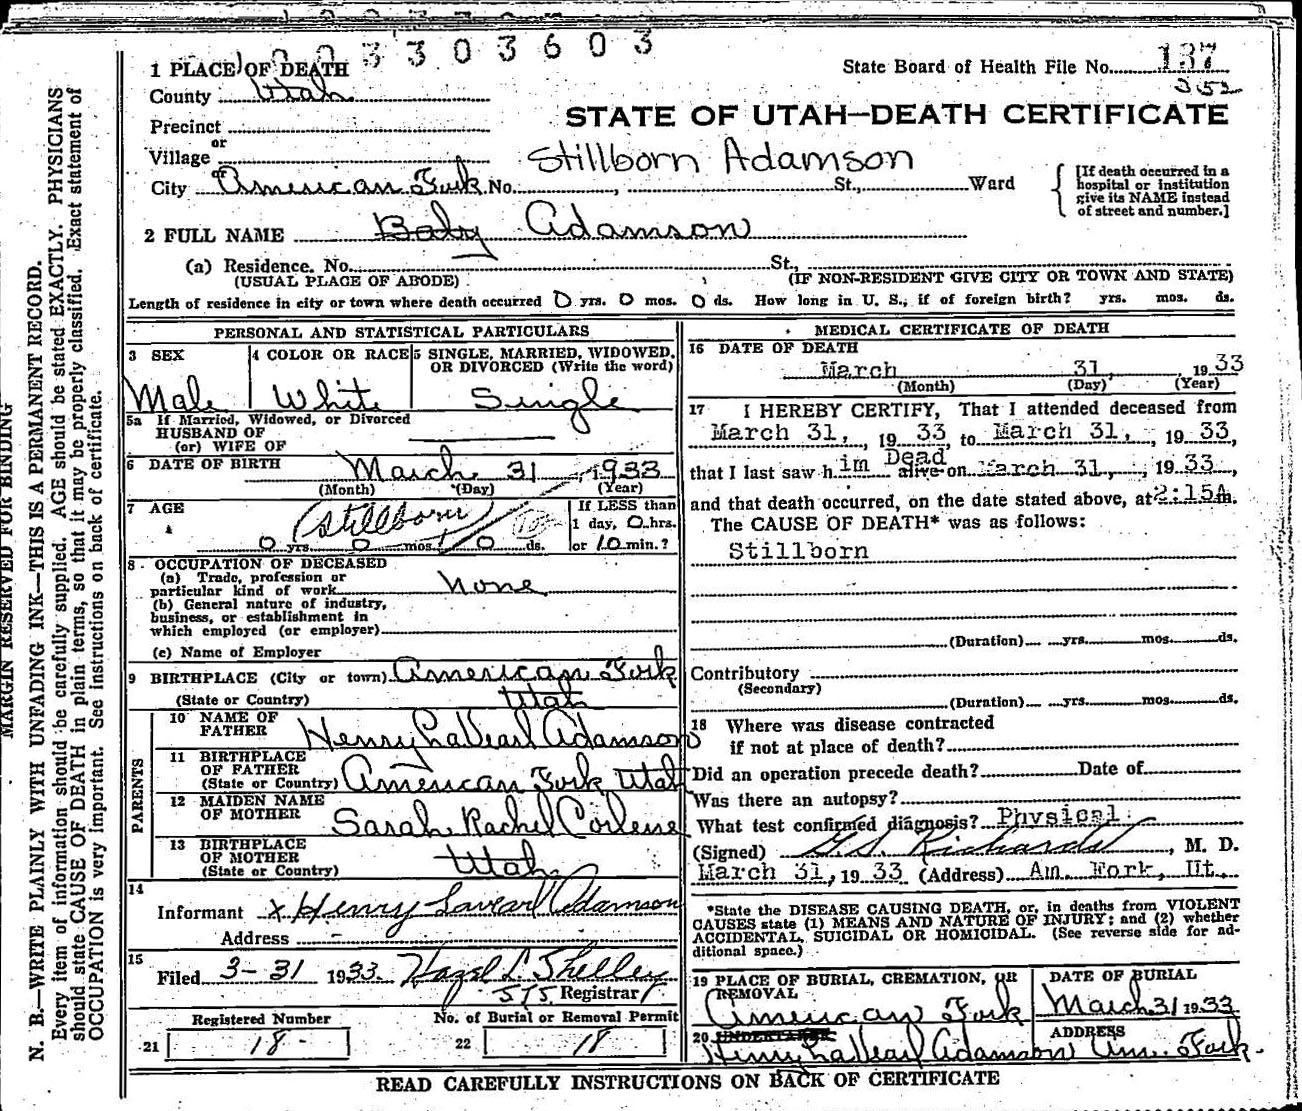 3 3 0 3 6 0 3
1 PLACE OF DEATH
State Board of Health File No. 137
352
County Utah
STATE OF UTAH—DEATH CERTIFICATE
Precinct
or
Village
Stillborn Adamson
City American Fork No. , St., Ward
[If death occurred in a hospital or institution give its NAME instead of street and number.]
2 FULL NAME Baby Adamson
(a) Residence. No. St.,
(USUAL PLACE OF ABODE) (IF NON-RESIDENT GIVE CITY OR TOWN AND STATE)
Length of residence in city or town where death occurred 0 yrs. 0 mos. 0 ds. How long in U. S., if of foreign birth? yrs. mos. ds.
PERSONAL AND STATISTICAL PARTICULARS
3 SEX
Male
4 COLOR OR RACE
White
5 SINGLE, MARRIED, WIDOWED, OR DIVORCED (Write the word)
Single
5a If Married, Widowed, or Divorced
HUSBAND OF
(or) WIFE OF
6 DATE OF BIRTH March 31, 1933
(Month) (Day) (Year)
7 AGE
(Stillborn)
0 yrs. 0 mos. 0 ds.
If LESS than
1 day, 0 hrs.
or 10 min.?
8 OCCUPATION OF DECEASED
(a) Trade, profession or
particular kind of work None
(b) General nature of industry,
business, or establishment in
which employed (or employer)
(c) Name of Employer
9 BIRTHPLACE (City or town) American Fork
(State or Country) Utah
PARENTS
10 NAME OF
FATHER Henry LaVearl Adamson
11 BIRTHPLACE
OF FATHER
(State or Country) American Fork Utah
12 MAIDEN NAME
OF MOTHER Sarah Rachel
13 BIRTHPLACE
OF MOTHER
(State or Country) Utah
14
Informant x Henry Lavearl Adamson
Address
15
Filed 3-31 1933. Hazel L. Shelley
515 Registrar
Registered Number
21 18
No. of Burial or Removal Permit
22 18
MEDICAL CERTIFICATE OF DEATH
16 DATE OF DEATH
March 31, , 1933
(Month) (Day) (Year)
17 I HEREBY CERTIFY, That I attended deceased from
March 31, , 19 33 to March 31, , 19 33,
that I last saw him Dead alive on March 31, , 19 33,
and that death occurred, on the date stated above, at 2:15A m.
The CAUSE OF DEATH* was as follows:
Stillborn
(Duration) yrs. mos. ds.
Contributory
(Secondary)
(Duration) yrs. mos. ds.
18 Where was disease contracted
if not at place of death?
Did an operation precede death? Date of
Was there an autopsy?
What test confirmed diagnosis? Physical
(Signed) G.S. Richards, M. D.
March 31, 19 33 (Address) Am. Fork, Ut.,
*State the DISEASE CAUSING DEATH, or, in deaths from VIOLENT
CAUSES state (1) MEANS AND NATURE OF INJURY; and (2) whether
ACCIDENTAL, SUICIDAL OR HOMICIDAL. (See reverse side for ad-
ditional space.)
19 PLACE OF BURIAL, CREMATION, OR
REMOVAL
American Fork
DATE OF BURIAL
March 31 1933
20 UNDERTAKER
Henry LaVearl Adamson
ADDRESS
Am. Fork.
READ CAREFULLY INSTRUCTIONS ON BACK OF CERTIFICATE
MARGIN RESERVED FOR BINDING
N. B.—WRITE PLAINLY WITH UNFADING INK—THIS IS A PERMANENT RECORD.
Every item of information should be carefully supplied. AGE should be stated EXACTLY. PHYSICIANS
should state CAUSE OF DEATH in plain terms, so that it may be properly classified. Exact statement of
OCCUPATION is very important. See instructions on back of certificate.